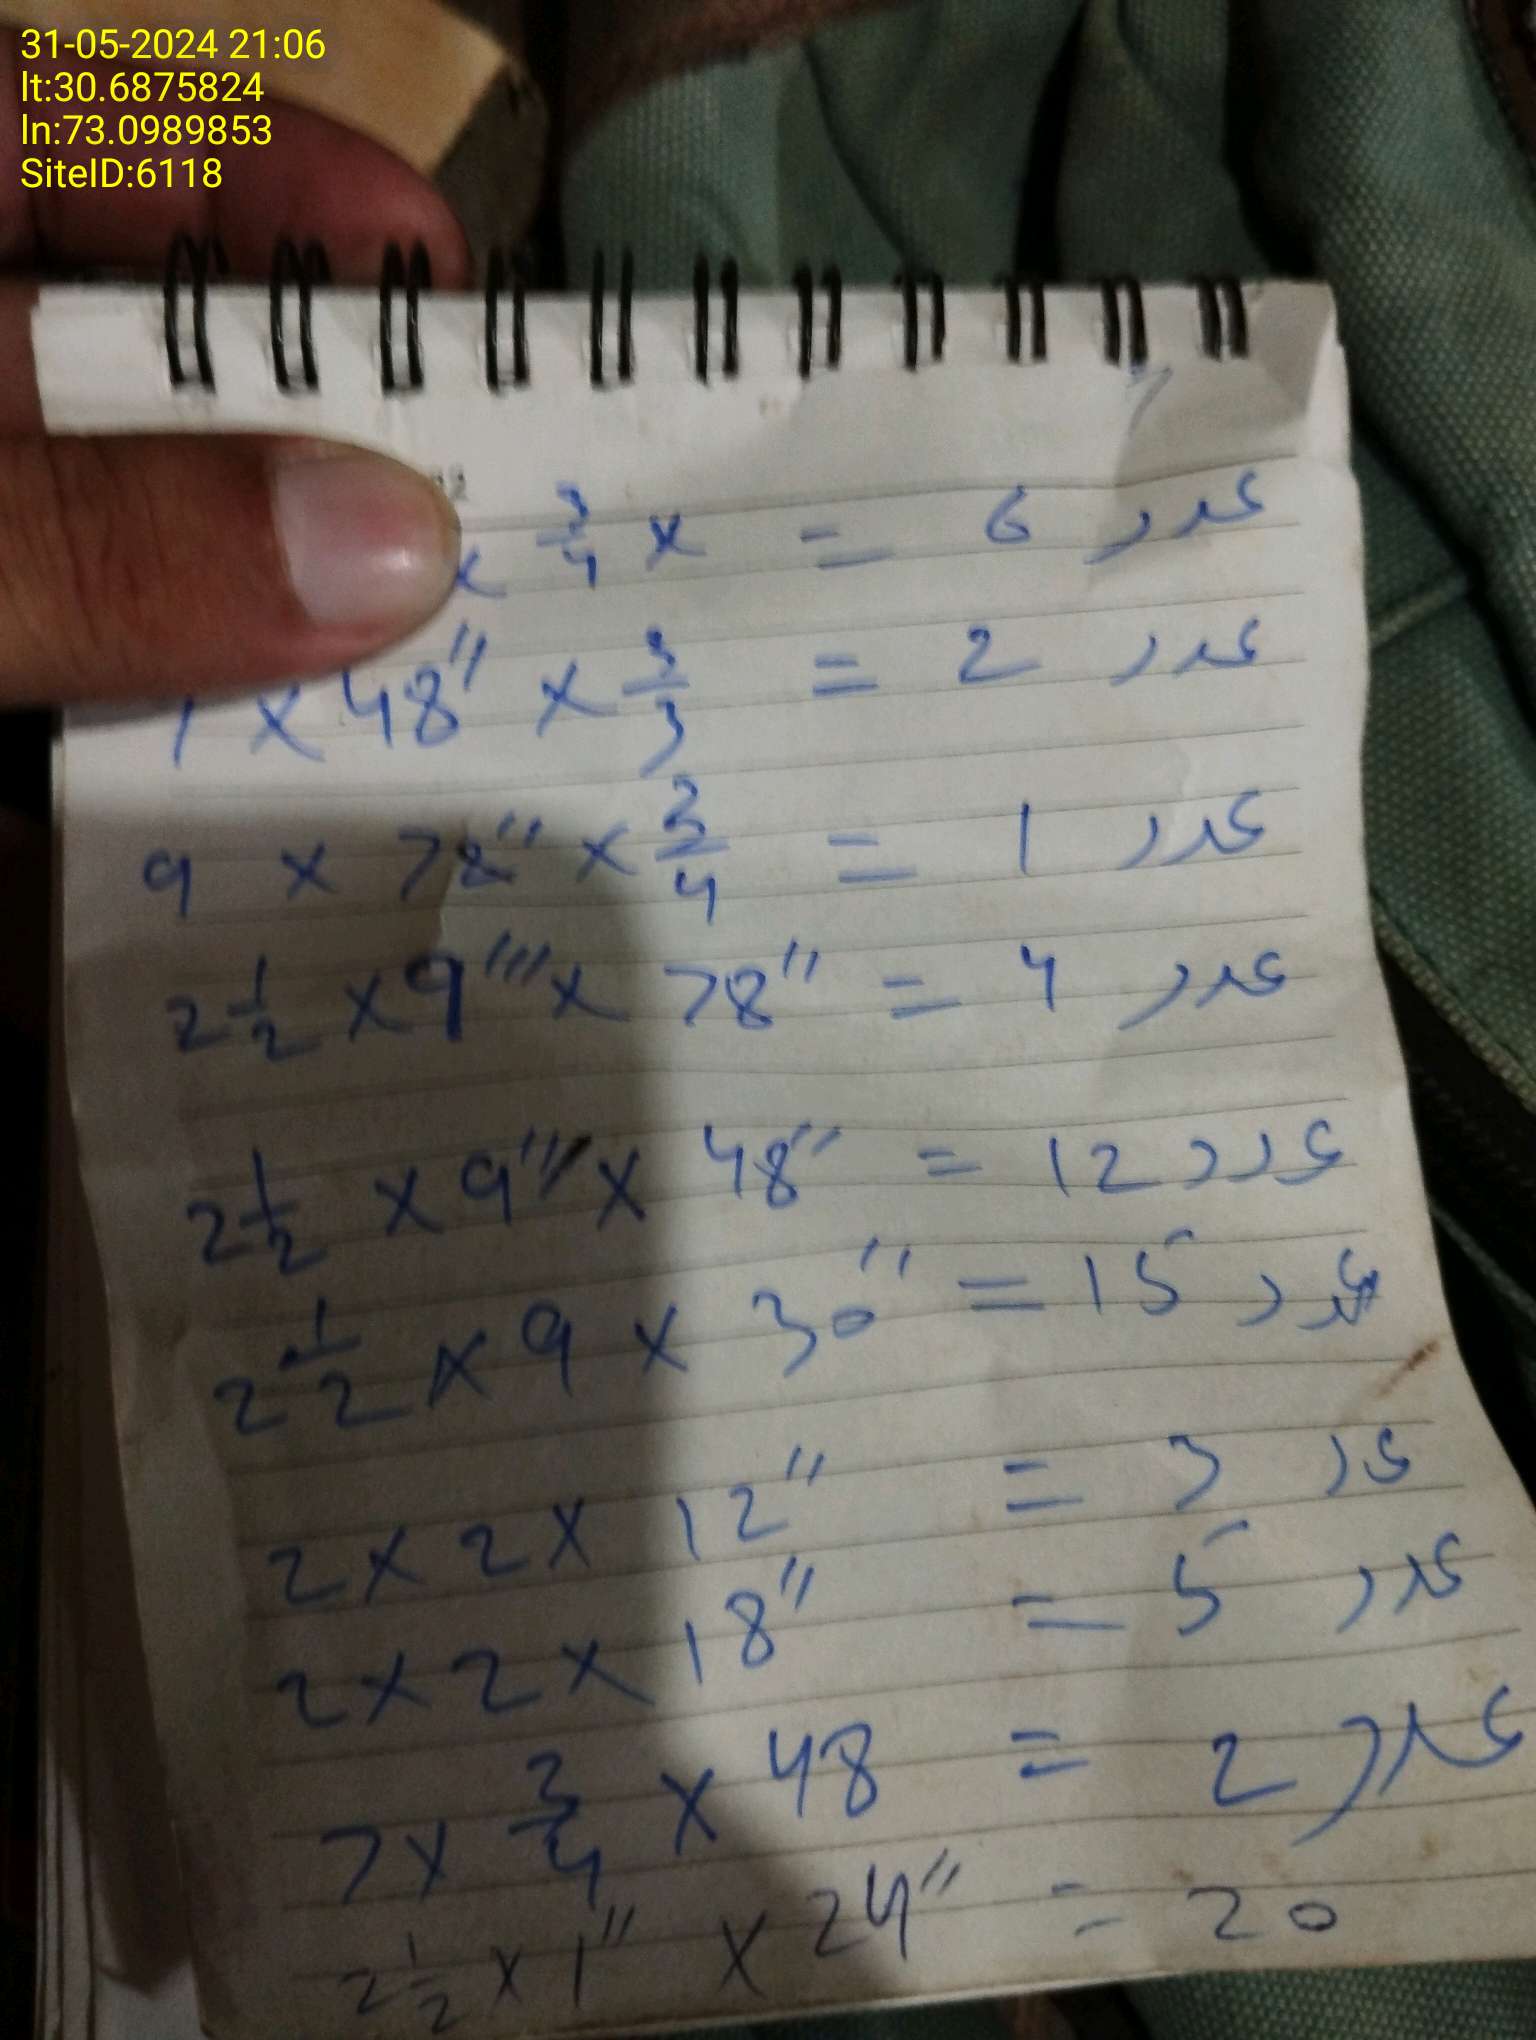 31-05-2024 21:06
lt:30.6875824
ln:73.0989853
SiteID:6118
x 3/4 x = 6 عدد
7 x 48" x 3/3 = 2 عدد
9 x 78" x 3/4 = 1 عدد
2 1/2 x 9''' x 78" = 4 عدد
2 1/2 x 9''' x 48" = 12 عدد
2 1/2 x 9 x 30" = 15 عدد
2 x 2 x 12" = 3 عدد
2 x 2 x 18" = 5 عدد
7 x 3/4 x 48 = 2 عدد
2 1/2 x 1" x 24" = 20